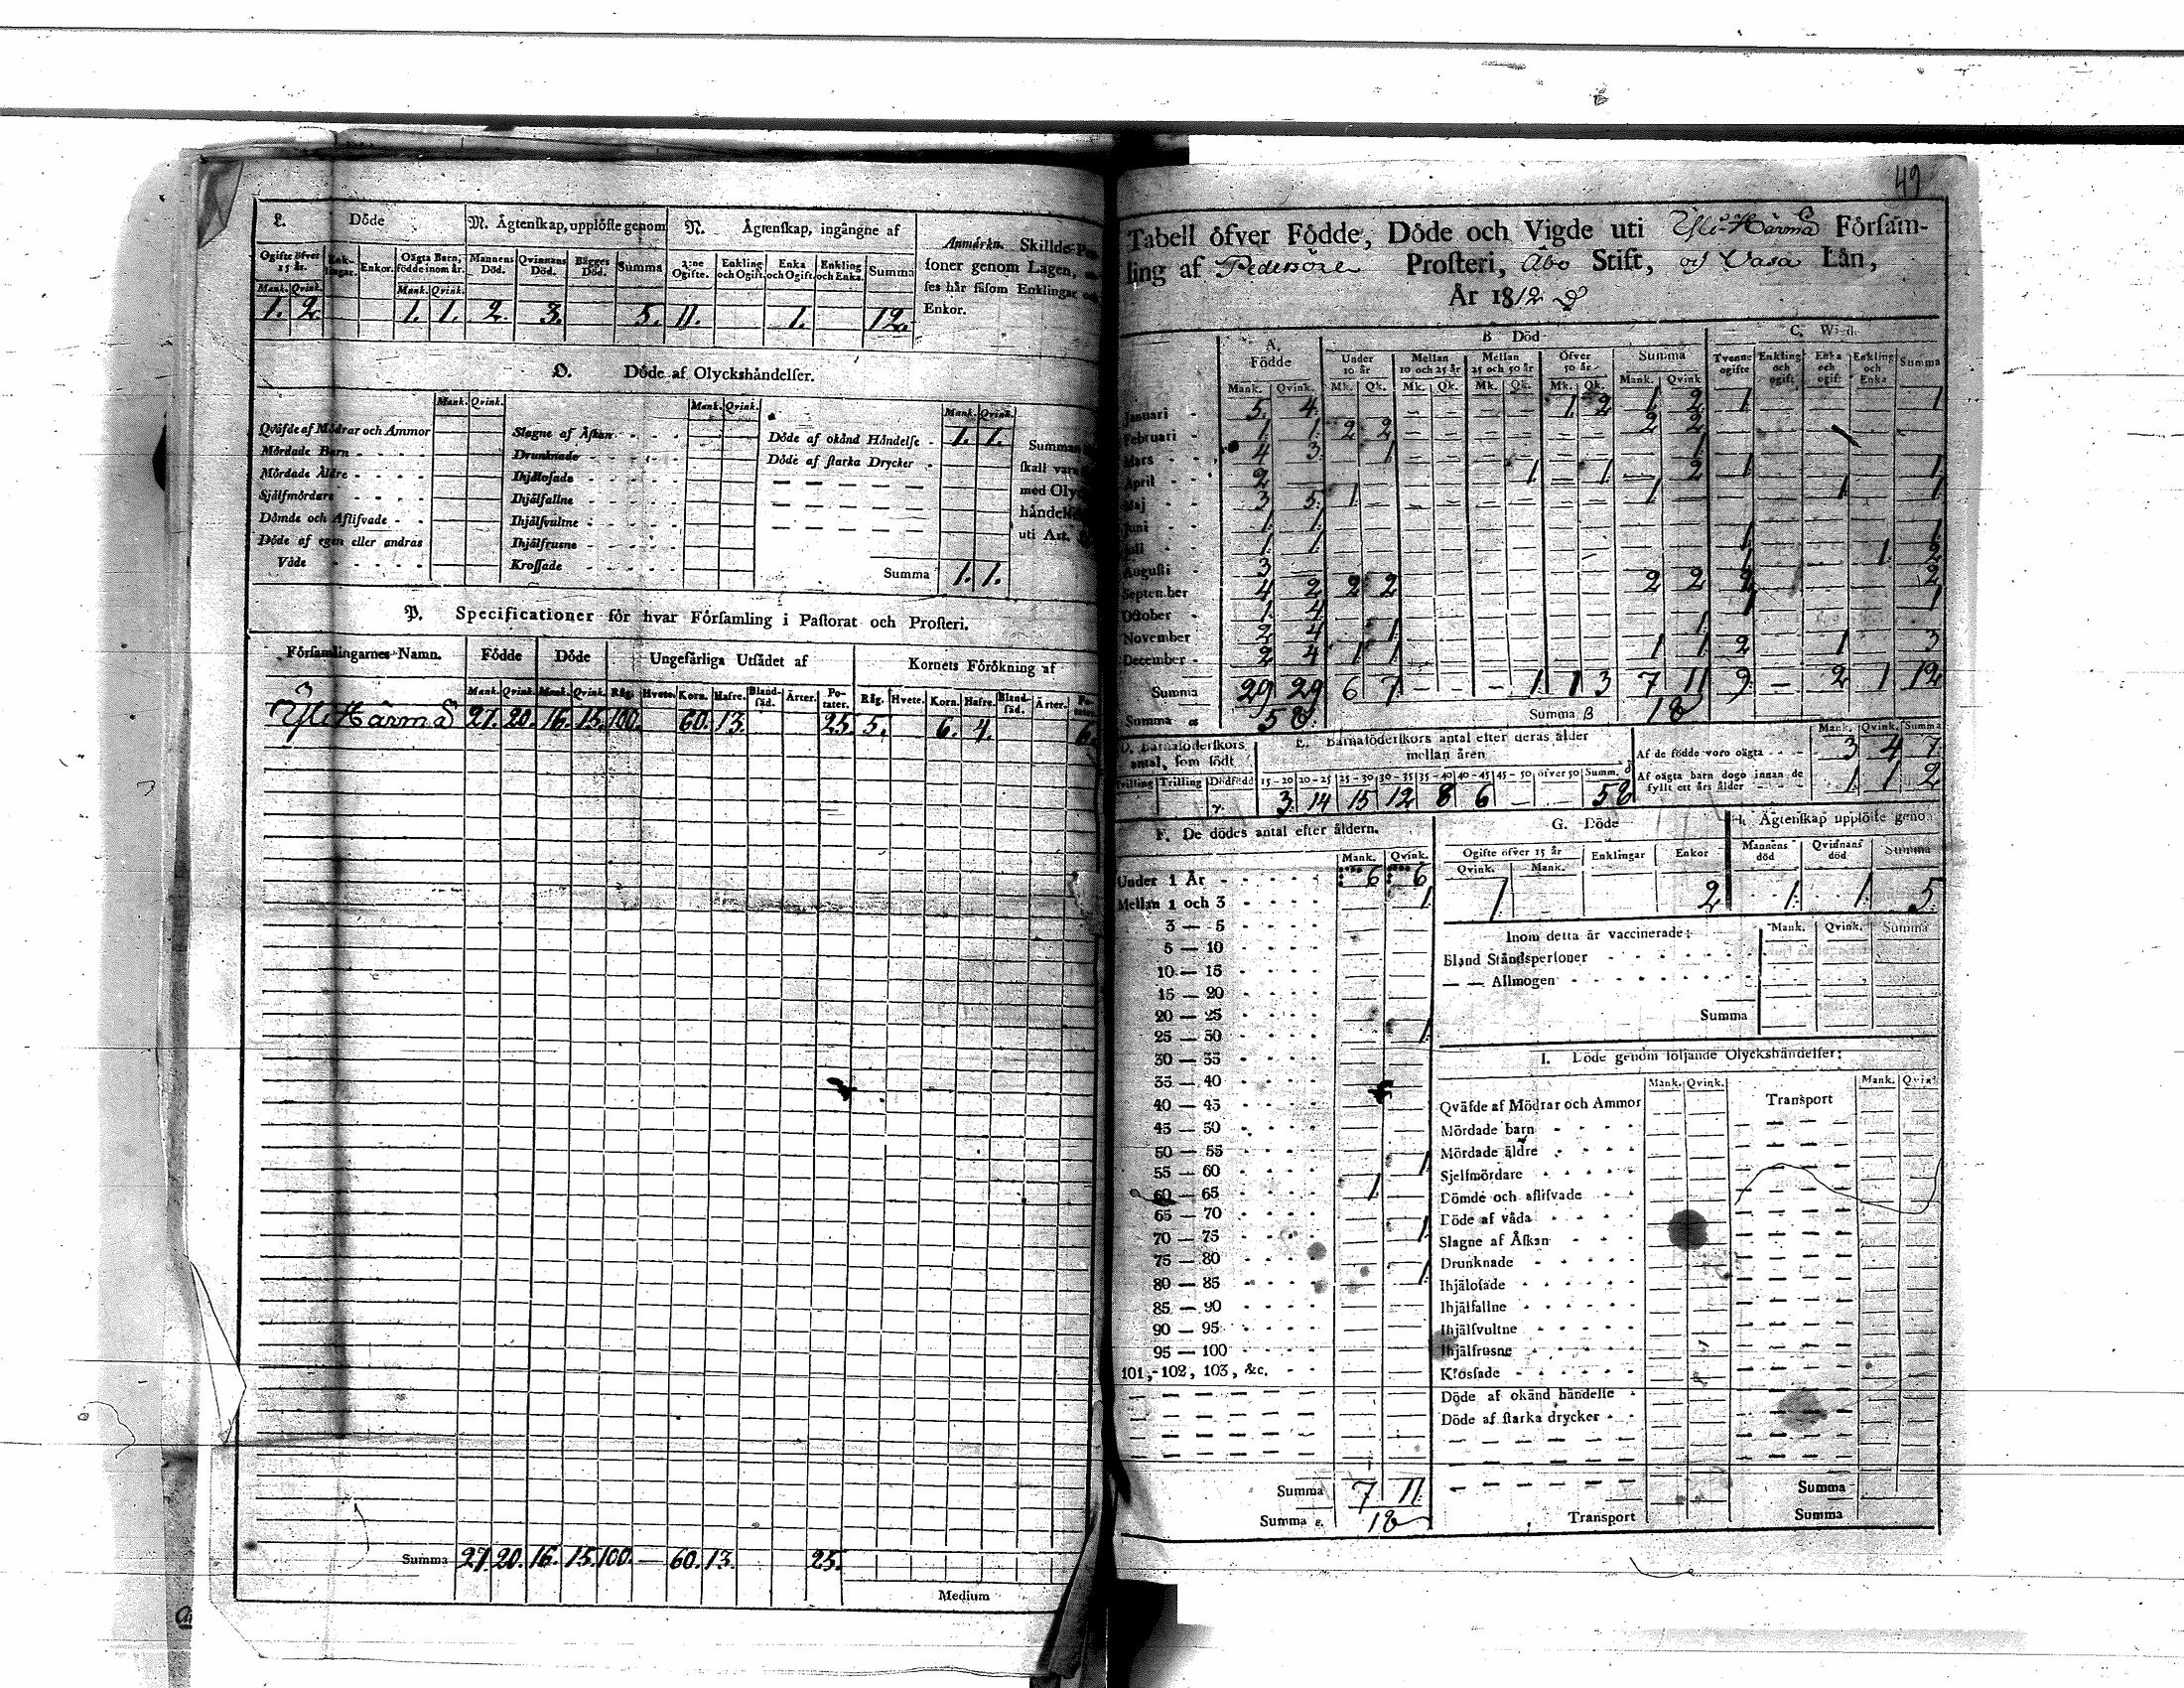 L. Döde
M. Ägtenskap, upplöste genom
N. Ägtenskap, ingångne af
Anmärkn. Skillde Per-
soner genom Lagen,
ses här såsom Enklingar och
Enkor.
Ogifte öfver 15 år. Enk-lingar. Enkor. Oägta Barn, födde inom år. Mannens Död. Qvinnans Död. Bägges Död. Summa 2:ne Ogifte. Enkling och Ogift. Enka och Ogift. Enkling och Enka. Summa
Mank. Qvink. Mank. Qvink.
1. 2. 1. 1. 2. 3. 5. 11. 1. 12.
O. Döde af Olyckshändelser.
Mank. Qvink. Mank. Qvink. Mank. Qvink.
Qväfde af Mödrar och Ammor
Mördade Barn
Mördade Äldre
Sjelfmördare
Dömde och Aflifvade
Döde af egen eller andras
Våde
Slagne af Åskan
Drunknade
Ihjälosade
Ihjälfallne
Ihjälsvultne
Ihjälfrusne
Krossade
Döde af okänd Händelse 1. 1.
Döde af starka Drycker
Summa 1. 1.
Summan
skall vara
med Oly
händels
uti Art.
P. Specificationer för hvar Församling i Pastorat och Prosteri.
Församlingarnes Namn. Födde Döde Ungefärliga Utsådet af Kornets Förökning af
Mank. Qvink. Mank. Qvink. Råg. Hvete. Korn. Hafre. Bland-säd. Ärter. Po-tater. Råg. Hvete. Korn. Hafre. Bland-säd. Ärter. Po-tater.
Ylihärmä 27. 20. 16. 15. 100. 60. 13. 25. 5. 6. 4. 6.
Summa 27. 20. 16. 15. 100. — 60. 13. 25.
Medium
49
Tabell öfver Födde, Döde och Vigde uti Yli-Härmä Församling
af Pedersöre Prosteri, Åbo Stift, och Vasa Län,
År 1812
A. Födde B Död C. Wigd
Under 10 år Mellan 10 och 25 år Mellan 25 och 50 år Öfver 50 år Summa Tvenne ogifte Enkling och ogift Enka och ogift Enkling och Enka Summa
Mank. Qvink. Mk. Qk. Mk. Qk. Mk. Qk. Mk. Qk. Mank. Qvink
Januari 5. 4. 1. 2 1. 2 1 1
Februari 1. 1. 2 2 2 2
Mars 4 3. 1 1
April 2 1 1 2 1 1
Maj 3 5. 1. 1 1 1
Juni 1. 1.
Juli 1. 1. 1 1
Augusti 3 1 1 2
September 4 2 2 2 2 2 2 2
October 1. 4 1 1
November 2 4 1 1
December 2 4 1 1 1 1 2 1 3
Summa 29 29 6 7 — — — 1 1 3 7 11 9 — 2 1 12
Summa α 58. Summa β 18
D. Barnaföderskors antal, som födt
E. Barnaföderskors antal efter deras ålder mellan åren
Tvilling Trilling Dödfödd 15–20 20–25 25–30 30–35 35–40 40–45 45–50 öfver 50 Summ. δ
3. 14 15 12 8 6 — — 58
Mank. Qvink. Summa
Af de födde voro oägta 3 4 7
Af oägta barn dogo innan de fyllt ett års ålder 1 1 2
F. De dödes antal efter åldern.
Mank. Qvink.
Under 1 År 6 6
Mellan 1 och 3 1
3 — 5
5 — 10
10 — 15
15 — 20
20 — 25
25 — 30 1
30 — 35
35 — 40
40 — 45
45 — 50
50 — 55
55 — 60 1
60 — 65 1
65 — 70
70 — 75 1
75 — 80
80 — 85 1
85 — 90
90 — 95
95 — 100
101, 102, 103, &c.
Summa 7 11
Summa ε. 18
G. Döde
Ogifte öfver 15 år Enklingar Enkor
Qvink. Mank.
1. 2
H. Ägtenskap upplöste geno
Mannens död Qvinnans död Summa
1. 1. 5.
Inom detta år vaccinerade: Mank. Qvink. Summa
Bland Ståndspersoner
— — Allmogen
Summa
I. Döde genom följande Olyckshändelser:
Mank. Qvink. Mank. Qvink
Qväfde af Mödrar och Ammor Transport
Mördade barn
Mördade äldre
Sjelfmördare
Dömde och aflifvade
Döde af våda
Slagne af Åskan
Drunknade
Ihjälosade
Ihjälfallne
Ihjälsvultne
Ihjälfrusne
Krossade
Döde af okänd händelse
Döde af starka drycker
Summa
Transport Summa